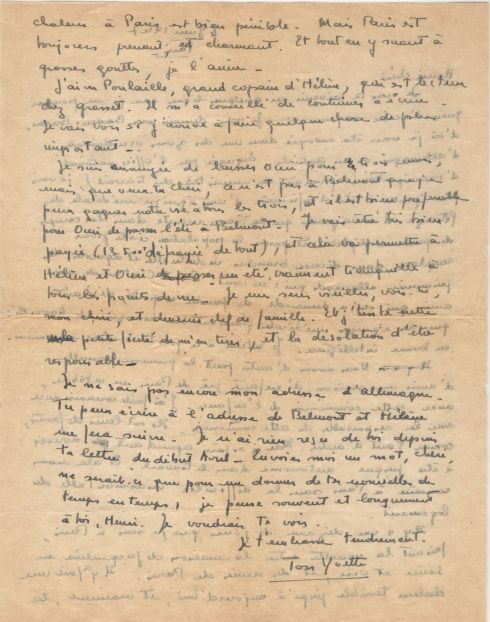 chaleur à Paris est bien pénible. Mais Paris est
toujours prenant, et charmant. Et tout en y suant à
grosses gouttes, je l'aime.
J'ai vu Poulaille, grand copain d'Hélène, qui est lecteur
chez Grasset. Il m'a conseillé de continuer à écrire.
Je vais voir si j'arrive à faire quelque chose de plus
important.
Je suis ennuyée de laisser Oum pour trois mois,
mais que veux-tu chéri, ce n'est pas à Belmont que je
peux gagner notre vie à tous les trois, et il est bien préférable
pour Oum de passer l'été à Belmont. Je vais être très bien
payée (défrayée de tout), et cela va permettre à
Hélène et Oum de passer un été vraiment tranquille à
tous les points de vue. Je me sens vieillir, vois-tu,
mon chéri, et devenir chef de famille. Et j'ai cette
petite fierté de m'en tirer, et la désolation d'être
responsable.
Je ne sais pas encore mon adresse d'Allemagne.
Tu peux écrire à l'adresse de Belmont et Hélène
me fera suivre. Je n'ai rien reçu de toi depuis
ta lettre du début Avril. Envoies moi un mot, chéri
ne serait-ce que pour me donner de tes nouvelles de
temps en temps, je pense souvent et longuement
à toi, Henri. Je voudrais te voir.
Je t'embrasse tendrement.
Yvette